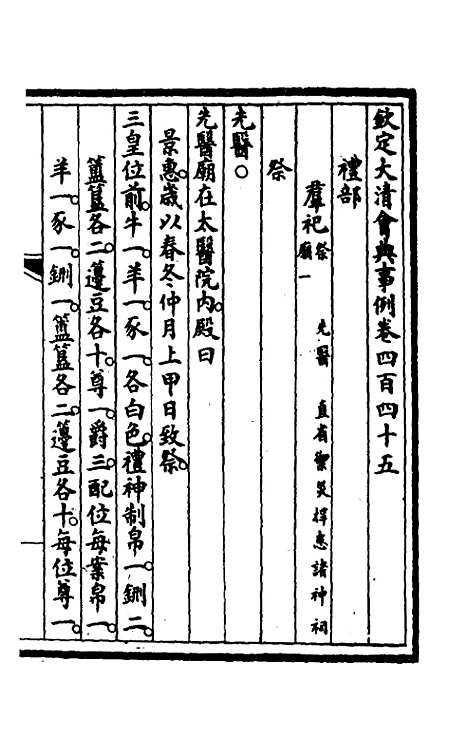 欽定大清會典事例卷四百四十五
禮部
羣祀 祭先醫 直省禦災捍患諸神祠廟一
祭
先醫○
先醫廟在太醫院內殿曰
景惠歲以春冬仲月上甲日致祭
三皇位前牛一羊一豕一各白色禮神制帛一鉶二
簠簋各二籩豆各十尊一爵三配位每案帛一
羊一豕一鉶一簠簋各二籩豆各十每位尊一